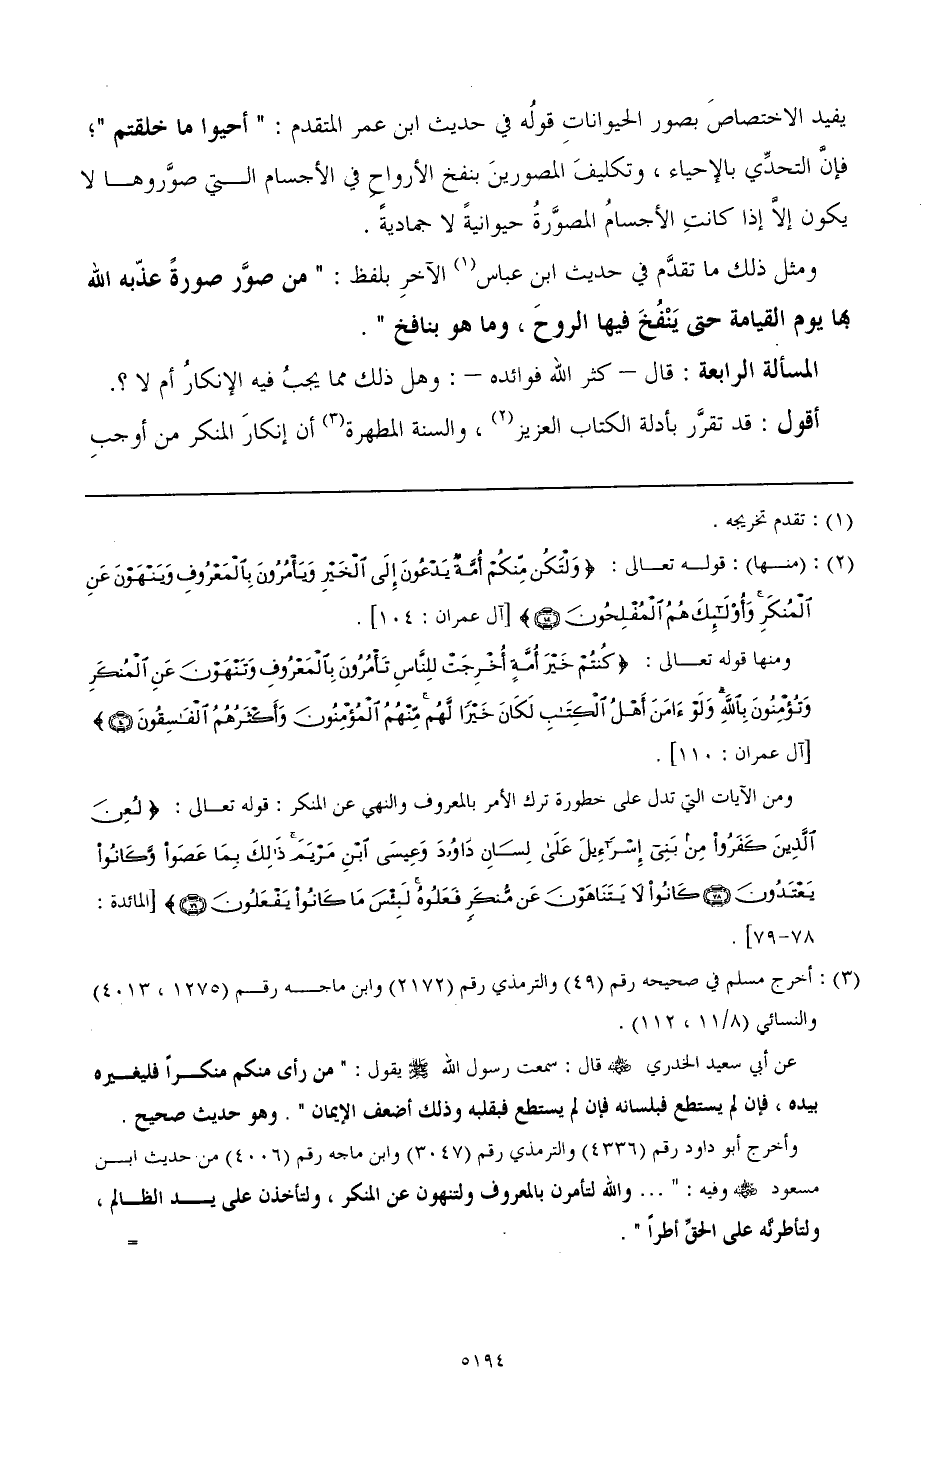 يفيد الاختصاصَ بصور الحيواناتِ قولُه في حديث ابن عمر المتقدم : " أحيوا ما خلقتم "؛
فإنَّ التحدِّي بالإحياء ، وتكليفَ المصورينَ بنفخ الأرواحِ في الأجسام الـتي صوَّروهـا لا
يكون إلاَّ إذا كانتِ الأجسامُ المصوَّرةُ حيوانيةً لا جماديةً .
ومثل ذلك ما تقدَّم في حديث ابن عباس(١) الآخرِ بلفظ : " من صوَّر صورةً عذّبه الله
بها يوم القيامة حتى يَنْفُخَ فيها الروحَ ، وما هو بنافخ " .
المسألة الرابعة : قال – كثر الله فوائده – : وهل ذلك مما يجبُ فيه الإنكارُ أم لا ؟.
أقول : قد تقرَّر بأدلة الكتاب العزيز(٢) ، والسنة المطهرة(٣) أن إنكارَ المنكر من أوجبِ
(١) : تقدم تخريجه .
(٢) : (منـها) : قولـه تعـالى : ﴿ وَلْتَكُن مِّنكُمْ أُمَّةٌ يَدْعُونَ إِلَى ٱلْخَيْرِ وَيَأْمُرُونَ بِٱلْمَعْرُوفِ وَيَنْهَوْنَ عَنِ
ٱلْمُنكَرِ ۚ وَأُوْلَـٰٓئِكَ هُمُ ٱلْمُفْلِحُونَ ﴿١٠٤﴾ ﴾ [آل عمران : ١٠٤] .
ومنها قوله تعـالى : ﴿ كُنتُمْ خَيْرَ أُمَّةٍ أُخْرِجَتْ لِلنَّاسِ تَأْمُرُونَ بِٱلْمَعْرُوفِ وَتَنْهَوْنَ عَنِ ٱلْمُنكَرِ
وَتُؤْمِنُونَ بِٱللَّهِ ۗ وَلَوْ ءَامَنَ أَهْلُ ٱلْكِتَـٰبِ لَكَانَ خَيْرًا لَّهُم ۚ مِّنْهُمُ ٱلْمُؤْمِنُونَ وَأَكْثَرُهُمُ ٱلْفَـٰسِقُونَ ﴿١١٠﴾ ﴾
[آل عمران : ١١٠] .
ومن الآيات التي تدل على خطورة ترك الأمر بالمعروف والنهي عن المنكر : قوله تعـالى : ﴿ لُعِنَ
ٱلَّذِينَ كَفَرُوا۟ مِنۢ بَنِىٓ إِسْرَٰٓءِيلَ عَلَىٰ لِسَانِ دَاوُۥدَ وَعِيسَى ٱبْنِ مَرْيَمَ ۚ ذَٰلِكَ بِمَا عَصَوا۟ وَّكَانُوا۟
يَعْتَدُونَ ﴿٧٨﴾ كَانُوا۟ لَا يَتَنَاهَوْنَ عَن مُّنكَرٍ فَعَلُوهُ ۚ لَبِئْسَ مَا كَانُوا۟ يَفْعَلُونَ ﴿٧٩﴾ ﴾ [المائدة :
٧٨-٧٩] .
(٣) : أخرج مسلم في صحيحه رقم (٤٩) والترمذي رقم (٢١٧٢) وابن ماجـه رقـم (١٢٧٥ ، ٤٠١٣)
والنسائي (١١/٨ ، ١١٢) .
عن أبي سعيد الخدري ﵁ قال : سمعت رسول الله ﷺ يقول : " من رأى منكم منكـراً فليغيره
بيده ، فإن لم يستطع فبلسانه فإن لم يستطع فبقلبه وذلك أضعف الإيمان " . وهو حديث صحيح .
وأخرج أبو داود رقم (٤٣٣٦) والترمذي رقم (٣٠٤٧) وابن ماجه رقم (٤٠٠٦) من حديث ابـن
مسعود ﵁ وفيه : " ... والله لتأمرن بالمعروف ولتنهون عن المنكر ، ولتأخذن على يـد الظالم ،
ولتأطرنَّه على الحقِّ أطراً " .
=
٥١٩٤